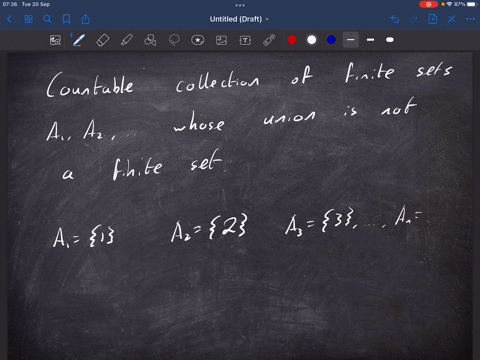 07:36 Tue 20 Sep 87%
Untitled (Draft)
Countable collection of finite sets
A₁, A₂, ... whose union is not
a finite set
A₁ = {1} A₂ = {2} A₃ = {3}, ..., Aₙ =